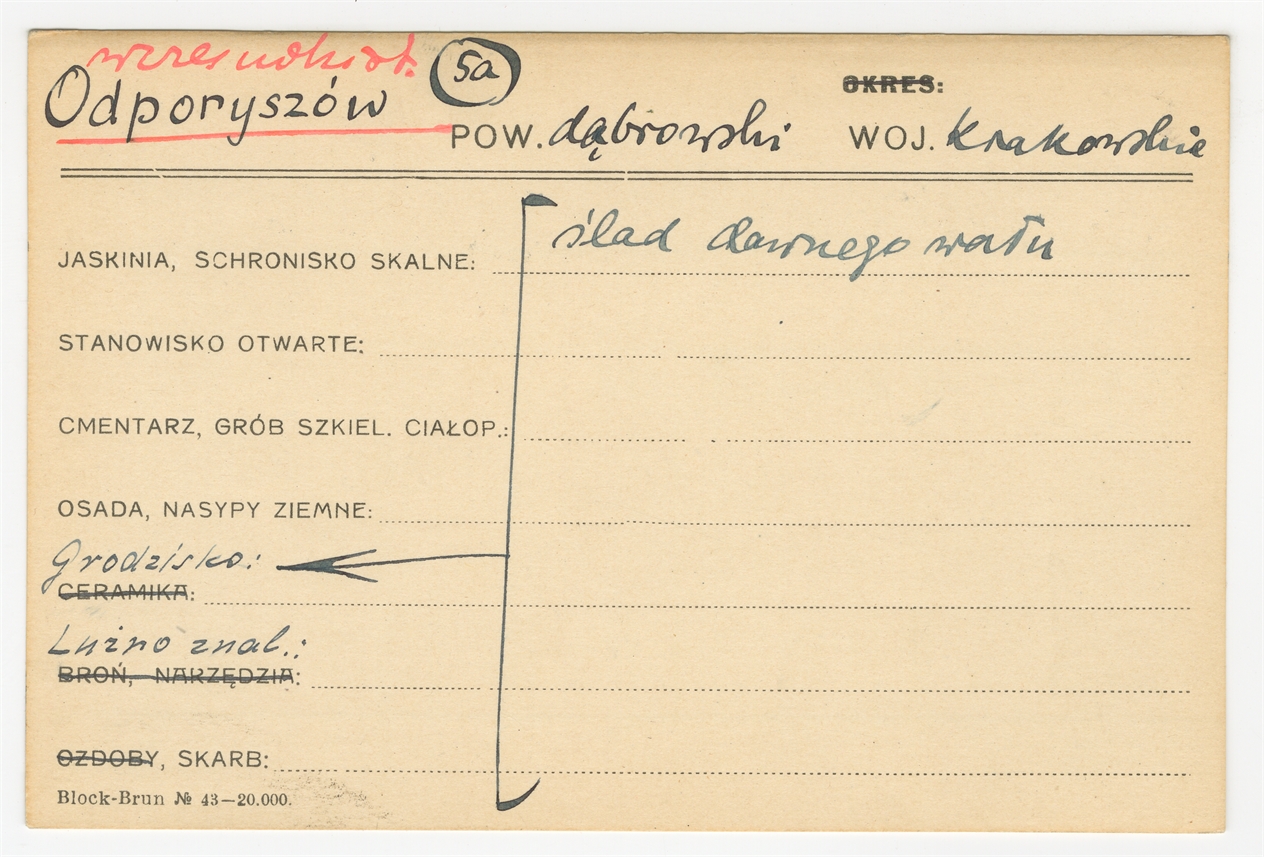 wczesnohist.
Odporyszów 5a OKRES:
POW. dąbrowski WOJ. Krakowskie
ślad dawnego wału
JASKINIA, SCHRONISKO SKALNE:
STANOWISKO OTWARTE:
CMENTARZ, GRÓB SZKIEL. CIAŁOP.:
OSADA, NASYPY ZIEMNE:
Grodzisko:
CERAMIKA:
Luźno znal.:
BROŃ, NARZĘDZIA:
OZDOBY, SKARB:
Block-Brun № 43—20.000.